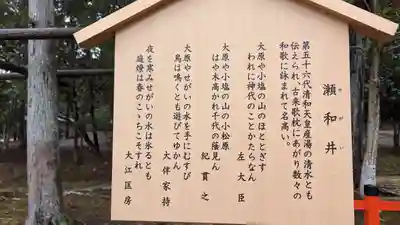 瀬和井
せがい
第五十六代清和天皇産湯の清水とも
伝えられ、古来歌枕にあがり数々の
和歌に詠まれて名高い。
大原や小塩の山のほととぎす
われに神代のことかたらなん
左大臣
大原や小塩の山の小松原
はや木高かれ千代の蔭見ん
紀貫之
大原やせがいの水を手にむすび
鳥は鳴くとも遊びてゆかん
大伴家持
夜を寒みせがいの水は氷るとも
庭燎は春のここちこそすれ
大江匡房